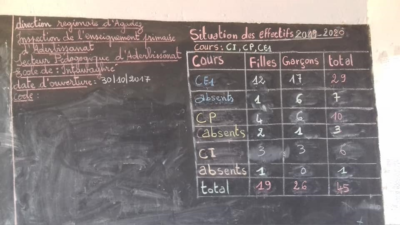 direction régionale d'Agadez
Inspection de l'enseignement primaire
d'Aderbissanat
Secteur Pédagogique d'Aderbissinat
École de : Intawagine
date d'ouverture : 30/10/2017
code :
Situation des effectifs 2019-2020
Cours : CI, CP, CE1
Cours Filles Garçons total
CE1 12 17 29
absents 1 6 7
CP 4 6 10
absents 2 1 3
CI 3 3 6
absents 1 0 1
total 19 26 45